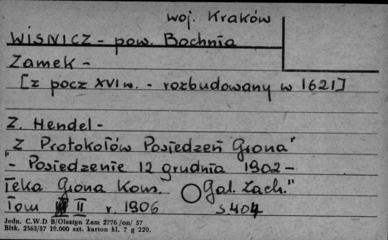 woj. Kraków
WISNICZ - pow. Bochnia
Zamek -
[z pocz XVI w. - rozbudowany w 1621]
Z. Hendel -
"Z Protokołów Posiedzeń Grona"
- Posiedzenie 12 grudnia 1902 -
Teka Grona Kons. Gal. Zach."
Tom II r 1906 s 404
Jedn. C.W.D B/Olsztyn Zam 2776 /on/ 57
Bltk. 2563/57 10.000 szt. karton kl. 7 g 220.